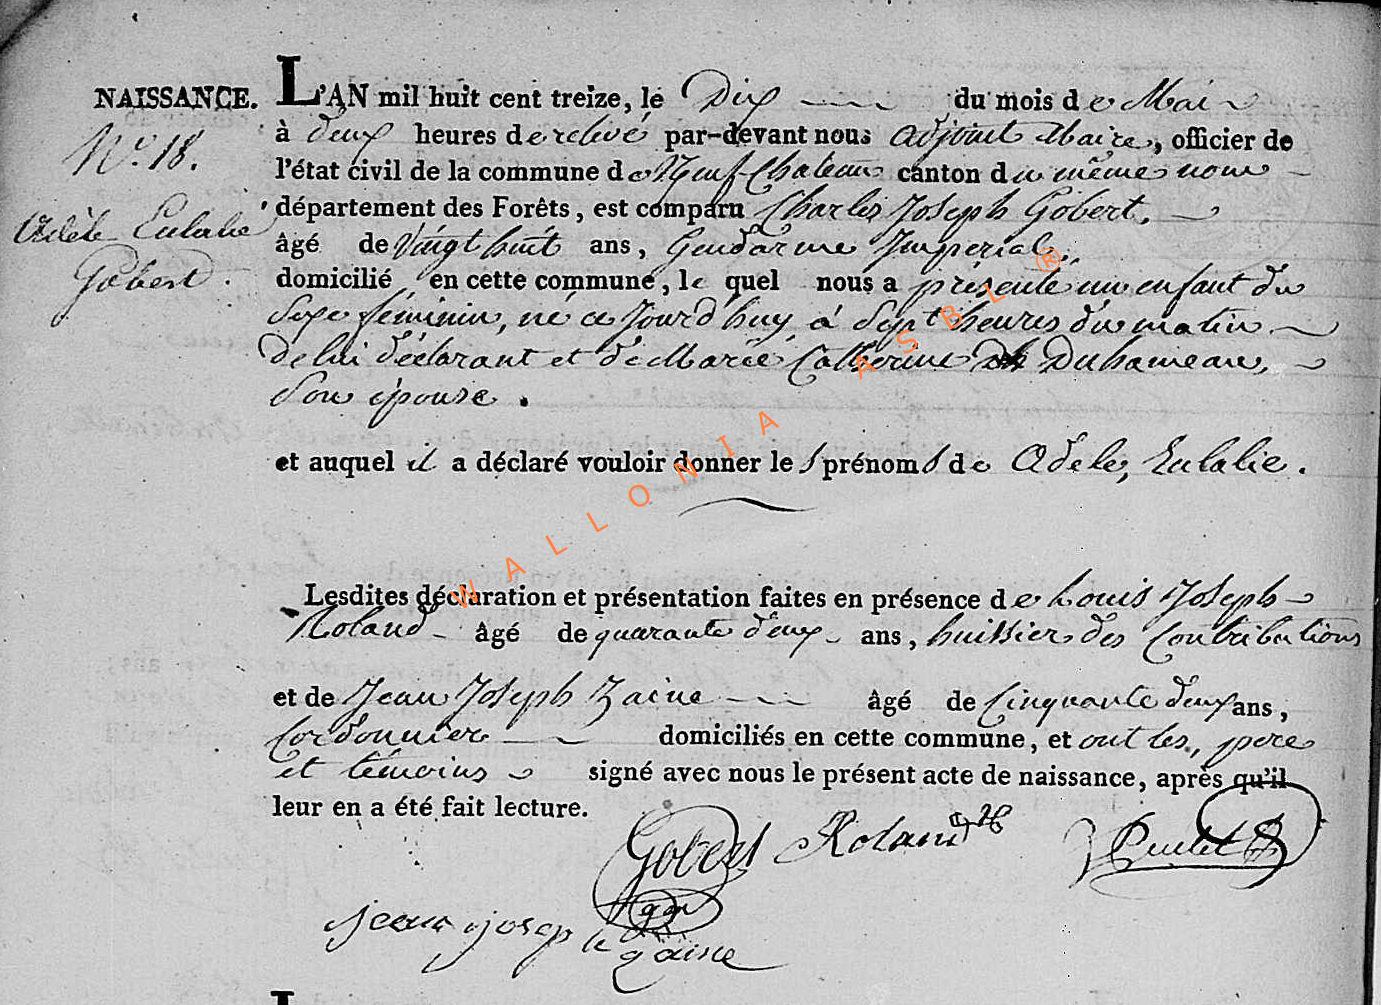 NAISSANCE.
N.° 18.
Adèle Eulalie
Gobert.
L'AN mil huit cent treize, le Dix du mois de Mai
à deux heures de relevé par-devant nous adjoint Maire, officier de
l'état civil de la commune de Neuf-Chateau canton du même nom
département des Forêts, est comparu Charles Joseph Gobert,
âgé de vingt huit ans, Gendarme Imperial,
domicilié en cette commune, lequel nous a présenté un enfant du
Sexe féminin, né ce Jourd'huy à Sept heures du matin
de lui déclarant et de Marie Catherine Duhameau,
Son épouse.
et auquel il a déclaré vouloir donner les prénoms de Adele, Eulalie.
Lesdites déclaration et présentation faites en présence de Louis Joseph
Roland âgé de quarante deux ans, huissier des Contributions
et de Jean Joseph Zaine âgé de Cinquante deux ans,
Cordonnier domiciliés en cette commune, et ont les, pere
et témoins signé avec nous le présent acte de naissance, après qu'il
leur en a été fait lecture.
Gobert Roland
jean josep zaine
WALLONIA ASBL ®